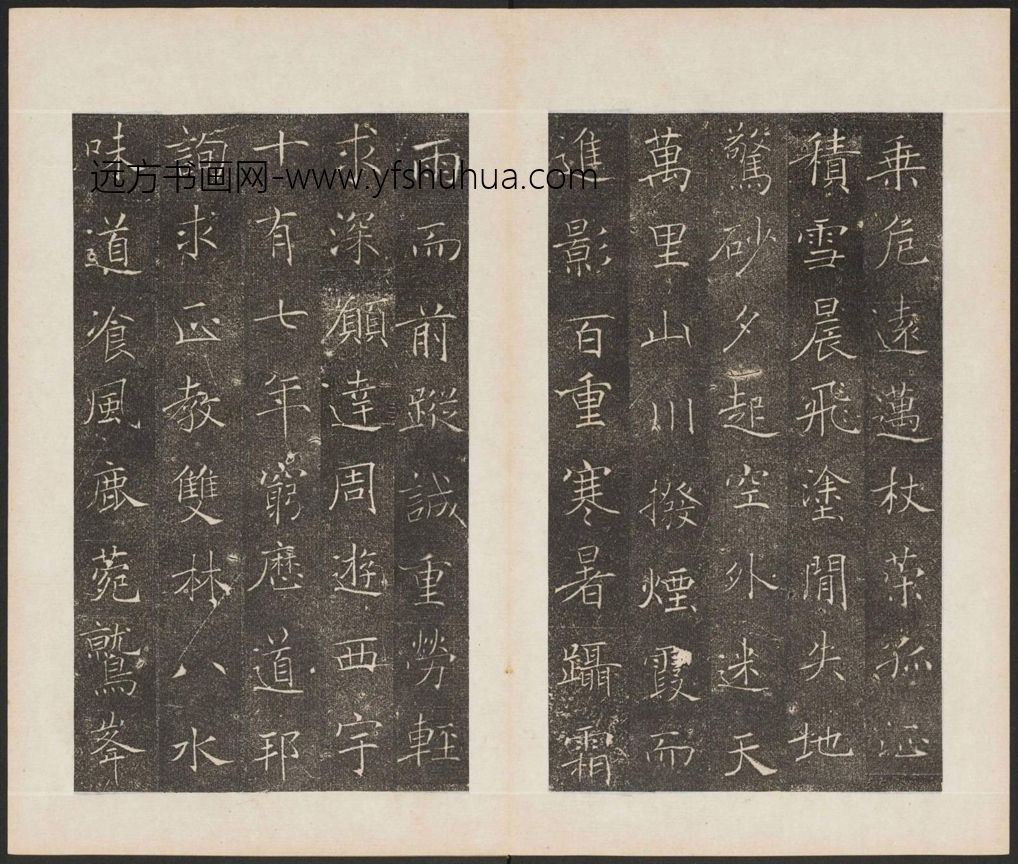 乗危遠邁杖策孤征
積雪晨飛塗閒失地
驚砂夕起空外迷天
萬里山川撥煙霞而
進影百重寒暑躡霜
雨而前蹤誠重勞輕
求深願達周遊西宇
十有七年窮歷道邦
詢求正教雙林八水
味道飡風鹿菀鷲峯
远方书画网-www.yfshuhua.com